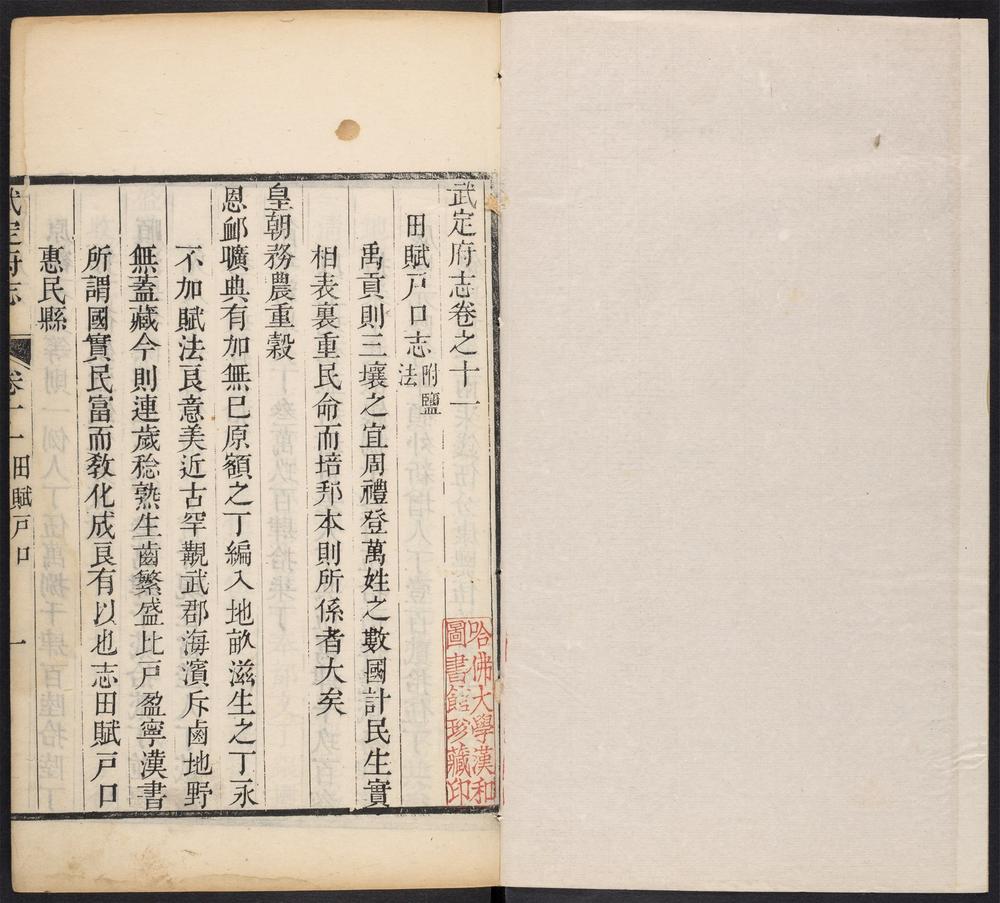 武定府志卷之十一
田賦戸口志附鹽法
禹貢則三壤之宜周禮登萬姓之數國計民生實
相表裏重民命而培邦本則所係者大矣
皇朝務農重穀
恩䘏曠典有加無已原額之丁編入地畝滋生之丁永
不加賦法良意美近古罕覯武郡海濱斥鹵地野
無蓋藏今則連歲稔熟生齒繁盛比戸盈寧漢書
所謂國實民富而敎化成良有以也志田賦戸口
惠民縣
武定府志 卷十一 田賦戸口 一
哈佛大學漢和
圖書館珍藏印